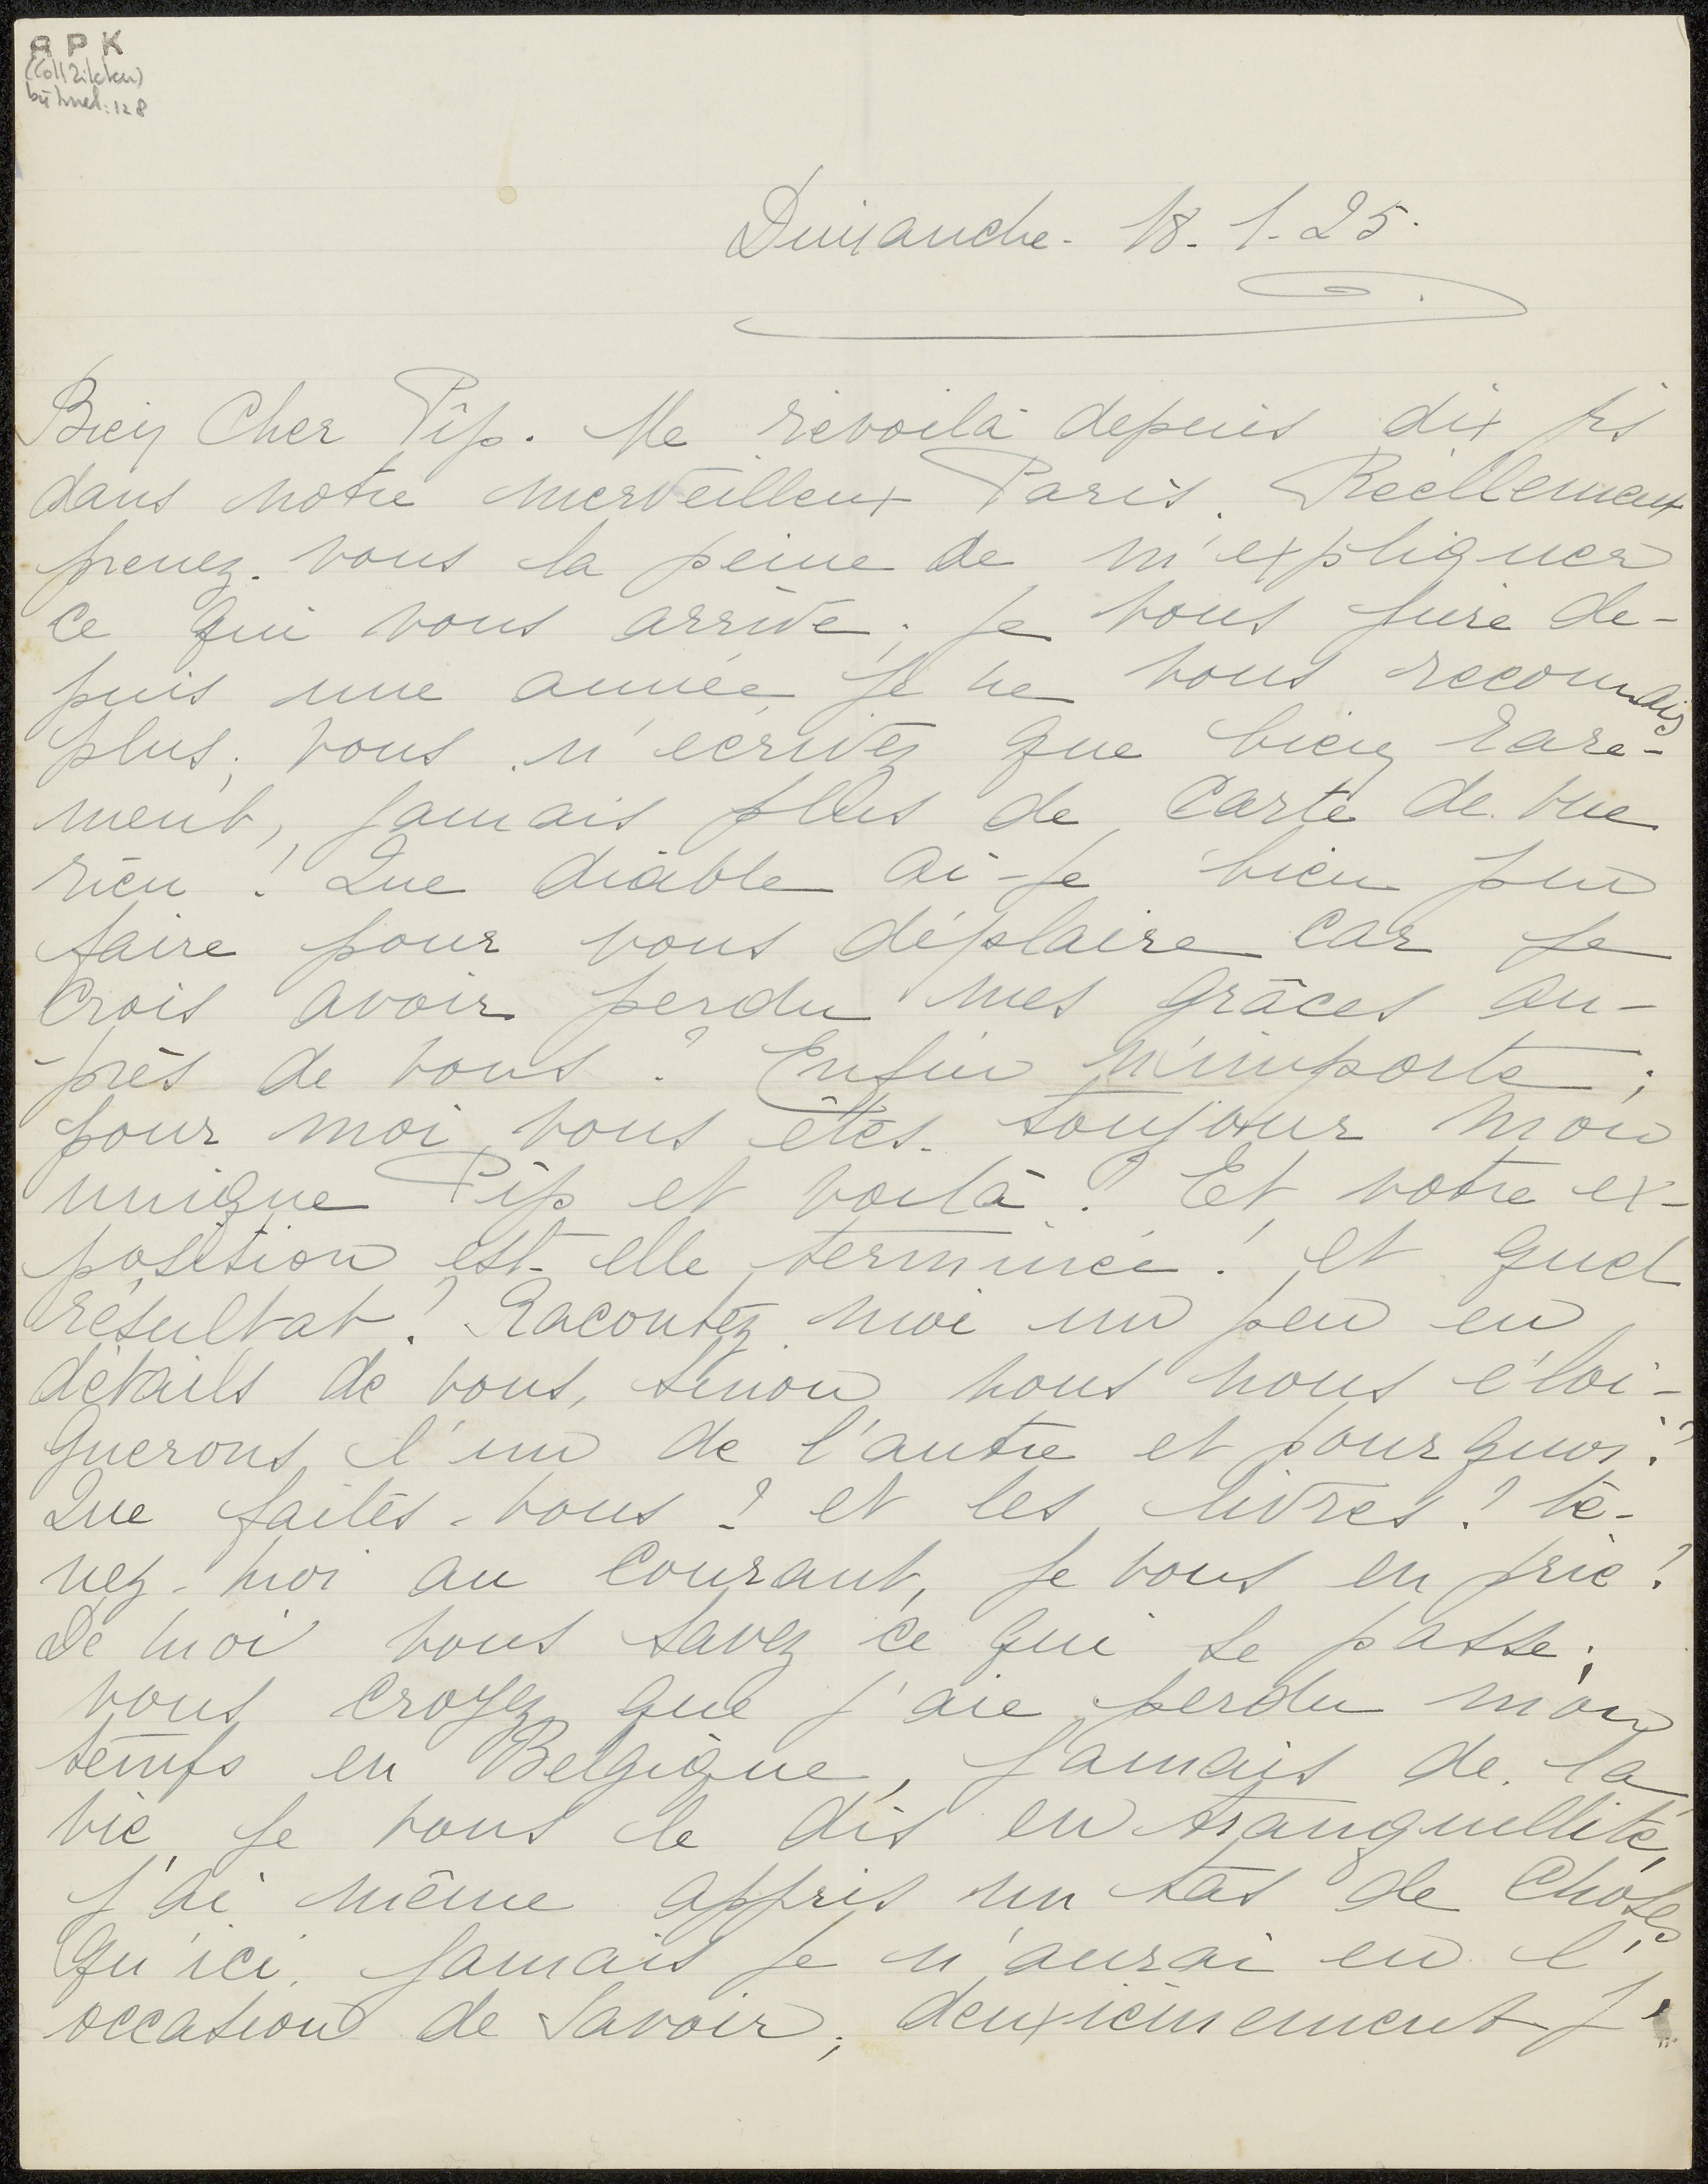 R P K
(Coll Zilcken)
Dimanche - 18. 1. 25.
Bien Cher Pîp. Me revoilà depuis dix jrs
dans notre merveilleux Paris. Réellement
prenez-vous la peine de m'expliquer
ce qui vous arrive; je vous jure de-
puis une année je ne vous reconnais
plus; vous n'écrivez que bien rare-
ment, jamais plus de carte de vue
rien! Que diable ai-je bien pu
faire pour vous déplaire car je
crois avoir perdu mes grâces au-
-près de vous? Enfin n'importe;
pour moi vous êtes toujour mon
unique Pîp et voilà! Et votre ex-
position est-elle terminée! et quel
résultat? Racontez moi un peu en
détails de vous, sinon nous nous éloi-
gnerons l'un de l'autre et pourquoi?
Que faites-vous? et les livres? te-
nez-moi au courant, je vous en prie!
De moi vous savez ce qui se passe;
vous croyez que j'aie perdu mon
temps en Belgique, jamais de la
vie, je vous le dis en tranquillité,
j'ai même appris un tas de choses
qu'ici jamais je n'aurai eu l'
occasion de savoir; deuxièmement j'